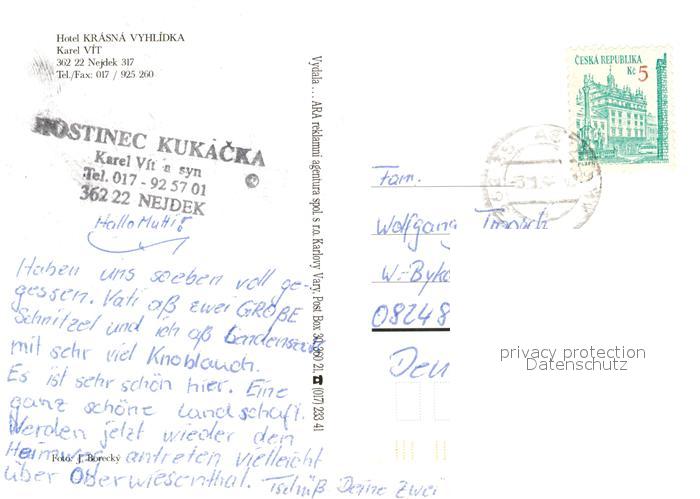 Hotel KRÁSNÁ VYHLÍDKA
Karel VÍT
362 22 Nejdek 317
Tel./Fax: 017 / 925 260
HOSTINEC KUKAČKA
Karel Vít a syn
Tel. 017 - 92 57 01
362 22 NEJDEK
Hallo Mutti!
Haben uns soeben voll ge-
gessen. Vati aß zwei GROßE
Schnitzel und ich aß
mit sehr viel Knoblauch.
Es ist sehr schön hier. Eine
ganz schöne Landschaft.
Werden jetzt wieder den
Heimweg antreten vielleicht
über Oberwiesenthal. Tschüß Deine zwei
Foto: J. Borecký
Vydala . . . ARA reklamní agentura spol. s r.o. Karlovy Vary, Post Box 30, 360 21, ☎ (017) 233 41
ČESKÁ REPUBLIKA
Kč 5
PLZEŇ
Fam.
Wolfgang
W.-Byko
08248
privacy protection
Datenschutz